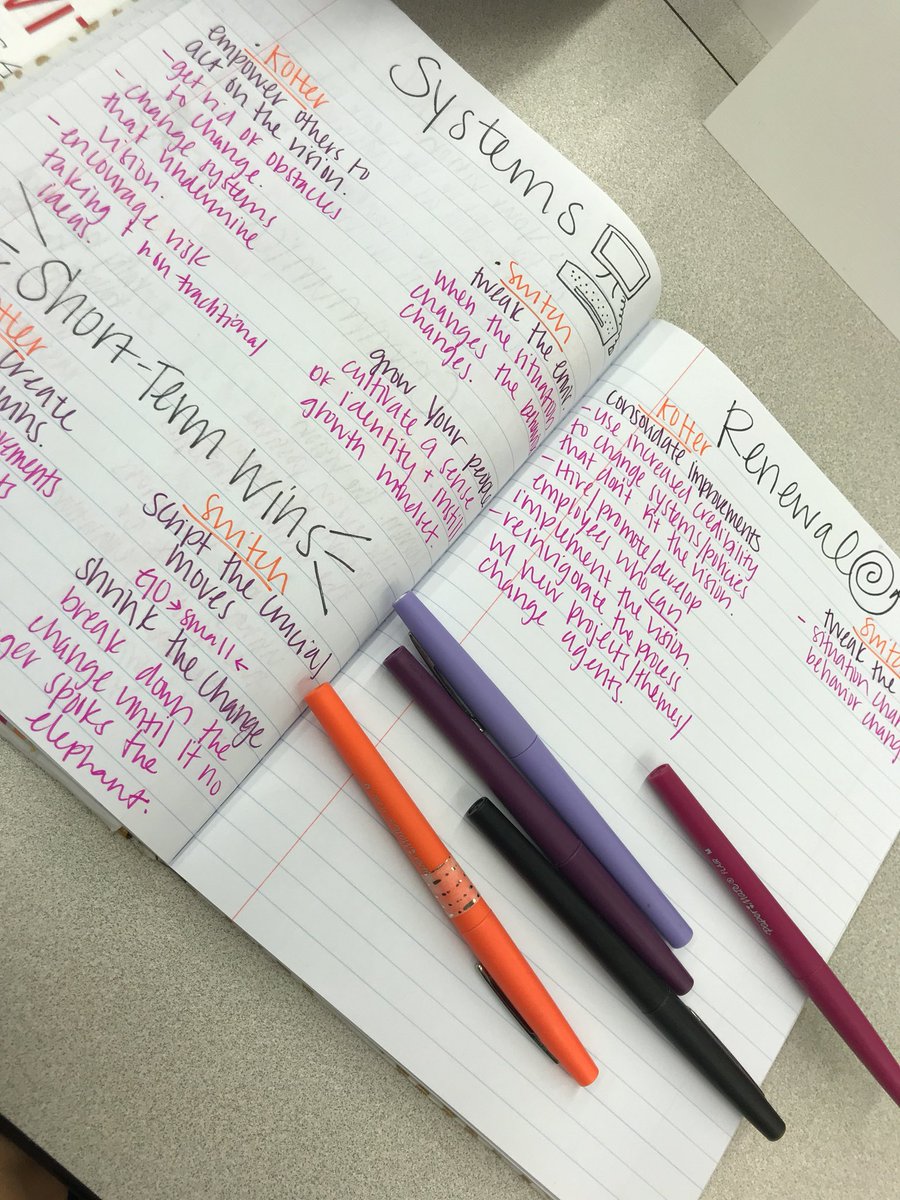 Systems
· Kotter
empower others to
act on the vision.
- get rid of obstacles
to change.
- change systems
that undermine
vision.
- encourage risk
taking + non traditional
ideas.
· Switch
tweak the
when the situation
changes the
changes.
grow your
cultivate a sense
of identity + instill
growth mindset.
Short-Term Wins
create
wins.
Switch
script the crucial
moves
GO > small <
shrink the change
break down the
change until it no
spooks the
elephant.
Renewal
Kotter
consolidate improvements
- use increased credibility
to change systems/policies
that don't fit the vision.
- Hire/promote/develop
employees who can
implement the vision.
- reinvigorate the process
w/ new projects/themes/
change agents.
tweak the
- situation
behavior
Paper:Mate® FLAIR M